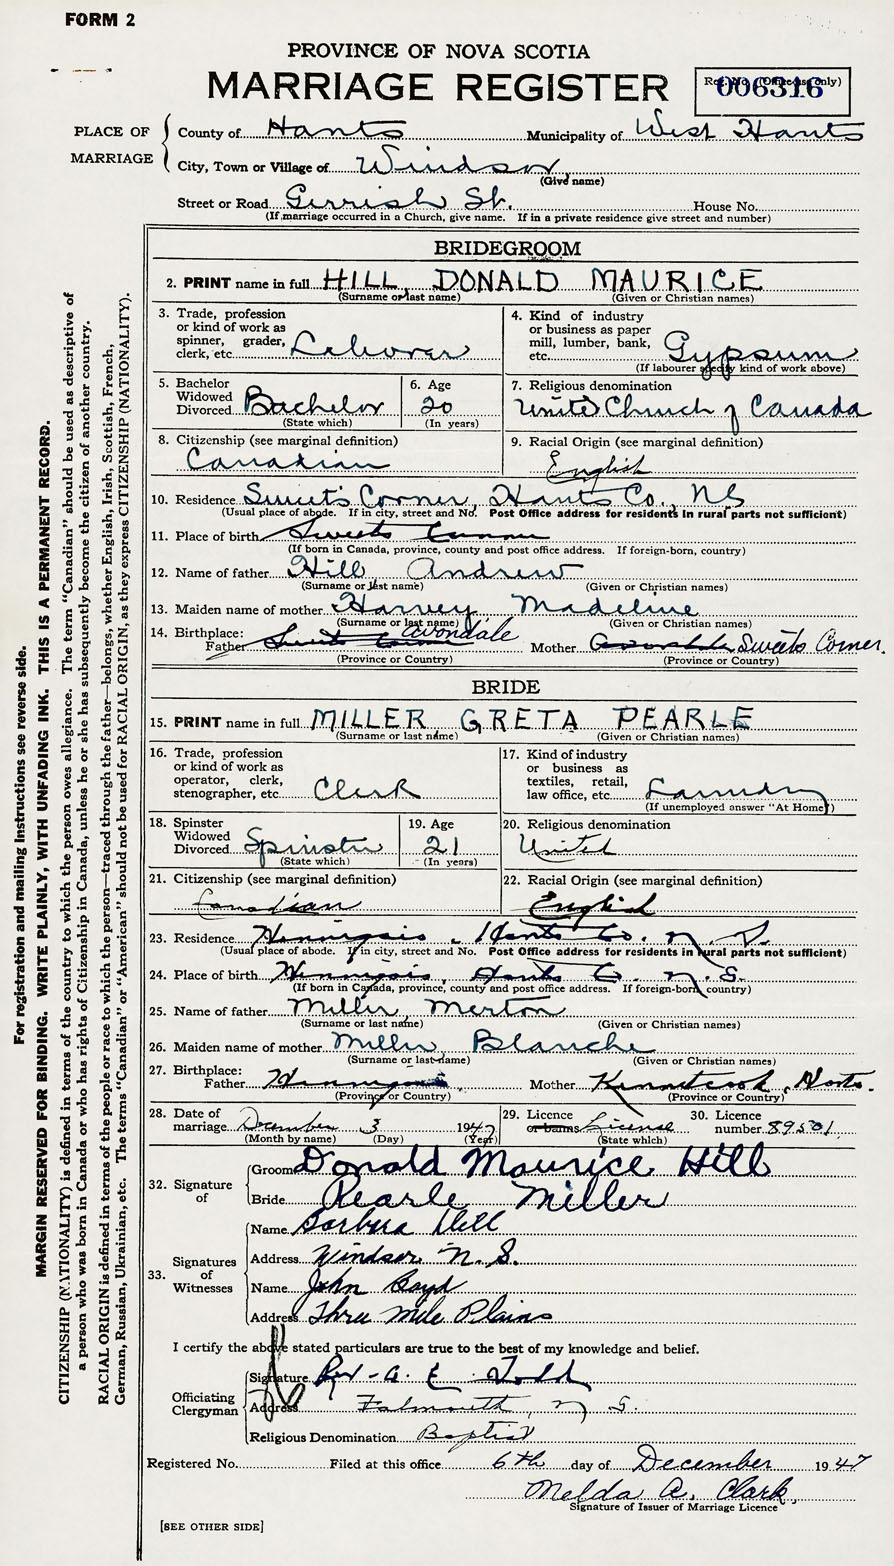 FORM 2
PROVINCE OF NOVA SCOTIA
MARRIAGE REGISTER
Reg. No. (Office use only)
006316
PLACE OF MARRIAGE
County of Hants Municipality of West Hants
City, Town or Village of Windsor
(Give name)
Street or Road Gerrish St. House No.
(If marriage occurred in a Church, give name. If in a private residence give street and number)
BRIDEGROOM
2. PRINT name in full HILL, DONALD MAURICE
(Surname or last name) (Given or Christian names)
3. Trade, profession
or kind of work as
spinner, grader,
clerk, etc. Laborer
4. Kind of industry
or business as paper
mill, lumber, bank,
etc. Gypsum
(If labourer specify kind of work above)
5. Bachelor
Widowed
Divorced Bachelor
(State which)
6. Age
20
(In years)
7. Religious denomination
United Church of Canada
8. Citizenship (see marginal definition)
Canadian
9. Racial Origin (see marginal definition)
English
10. Residence Sweet's Corner, Hants Co., NS
(Usual place of abode. If in city, street and No. Post Office address for residents in rural parts not sufficient)
11. Place of birth Sweets Corner
(If born in Canada, province, county and post office address. If foreign-born, country)
12. Name of father Hill Andrew
(Surname or last name) (Given or Christian names)
13. Maiden name of mother Harvey, Madeline
(Surname or last name) (Given or Christian names)
14. Birthplace:
Father Sweets Corner Avondale Mother Avondale Sweets Corner.
(Province or Country) (Province or Country)
BRIDE
15. PRINT name in full MILLER GRETA PEARLE
(Surname or last name) (Given or Christian names)
16. Trade, profession
or kind of work as
operator, clerk,
stenographer, etc. Clerk
17. Kind of industry
or business as
textiles, retail,
law office, etc. Laundry
(If unemployed answer "At Home")
18. Spinster
Widowed
Divorced Spinster
(State which)
19. Age
21
(In years)
20. Religious denomination
United
21. Citizenship (see marginal definition)
Canadian
22. Racial Origin (see marginal definition)
English
23. Residence Hants Co. N. S.
(Usual place of abode. If in city, street and No. Post Office address for residents in rural parts not sufficient)
24. Place of birth Hants Co. N. S.
(If born in Canada, province, county and post office address. If foreign-born, country)
25. Name of father Miller, Merton
(Surname or last name) (Given or Christian names)
26. Maiden name of mother Miller, Blanche
(Surname or last name) (Given or Christian names)
27. Birthplace:
Father Mother Kennetcook, Hants.
(Province or Country) (Province or Country)
28. Date of
marriage December 3 1947
(Month by name) (Day) (Year)
29. Licence
or banns License
(State which)
30. Licence
number 89501
32. Signature of
Groom Donald Maurice Hill
Bride Pearle Miller
33. Signatures of Witnesses
Name Barbara Hill
Address Windsor N. S.
Name John Boyd
Address Three Mile Plains
I certify the above stated particulars are true to the best of my knowledge and belief.
Officiating Clergyman
Signature Rev - A. E. Todd
Address Falmouth, N S.
Religious Denomination Baptist
Registered No. Filed at this office 6th day of December 1947
Melda A. Clark
Signature of Issuer of Marriage Licence
[SEE OTHER SIDE]
For registration and mailing instructions see reverse side.
MARGIN RESERVED FOR BINDING. WRITE PLAINLY, WITH UNFADING INK. THIS IS A PERMANENT RECORD.
CITIZENSHIP (NATIONALITY) is defined in terms of the country to which the person owes allegiance. The term "Canadian" should be used as descriptive of
a person who was born in Canada or who has rights of Citizenship in Canada, unless he or she has subsequently become the citizen of another country.
RACIAL ORIGIN is defined in terms of the people or race to which the person—traced through the father—belongs, whether English, Irish, Scottish, French,
German, Russian, Ukrainian, etc. The terms "Canadian" or "American" should not be used for RACIAL ORIGIN, as they express CITIZENSHIP (NATIONALITY).